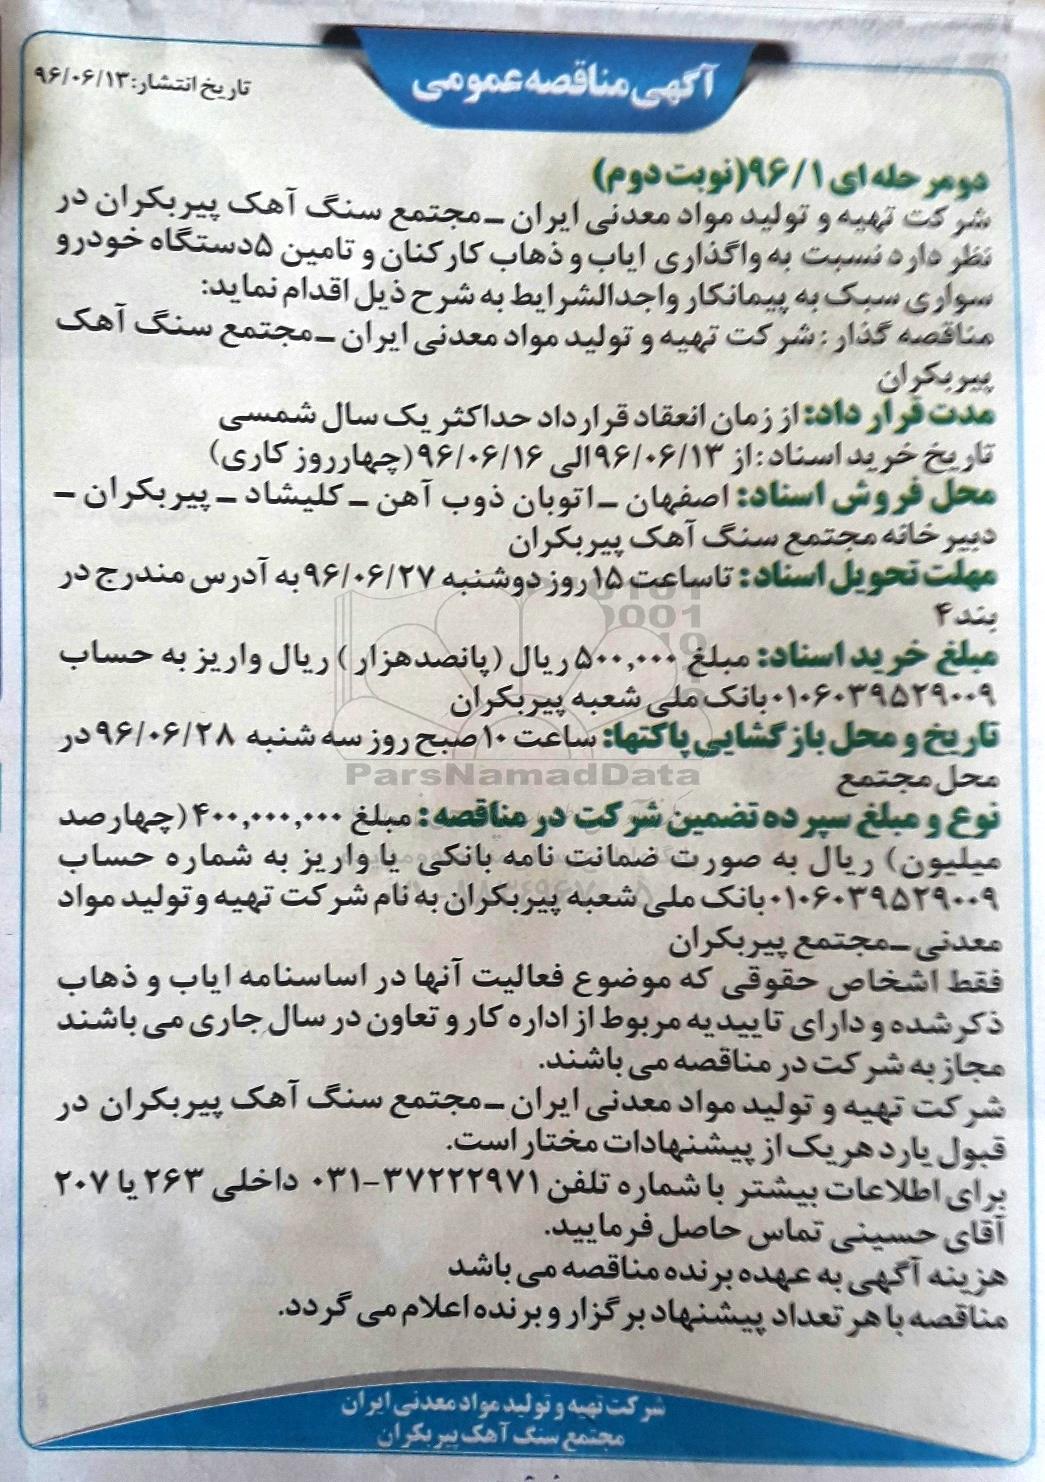 آگهی مناقصه عمومی
تاریخ انتشار: ۹۶/۰۶/۱۳
دومرحله ای ۹۶/۱(نوبت دوم)
شرکت تهیه و تولید مواد معدنی ایران – مجتمع سنگ آهک پیربکران در
نظر دارد نسبت به واگذاری ایاب و ذهاب کارکنان و تامین ۵دستگاه خودرو
سواری سبک به پیمانکار واجدالشرایط به شرح ذیل اقدام نماید:
مناقصه گذار : شرکت تهیه و تولید مواد معدنی ایران – مجتمع سنگ آهک
پیربکران
مدت قرارداد: از زمان انعقاد قرارداد حداکثر یک سال شمسی
تاریخ خرید اسناد: از ۹۶/۰۶/۱۳الی ۹۶/۰۶/۱۶(چهارروز کاری)
محل فروش اسناد: اصفهان – اتوبان ذوب آهن – کلیشاد – پیربکران –
دبیرخانه مجتمع سنگ آهک پیربکران
مهلت تحویل اسناد: تاساعت ۱۵روز دوشنبه ۹۶/۰۶/۲۷به آدرس مندرج در
بند۴
مبلغ خرید اسناد: مبلغ ۵۰۰,۰۰۰ ریال (پانصدهزار) ریال واریز به حساب
۰۱۰۶۰۳۹۵۲۹۰۰۹بانک ملی شعبه پیربکران
تاریخ و محل بازگشایی پاکتها: ساعت ۱۰صبح روز سه شنبه ۹۶/۰۶/۲۸در
محل مجتمع
ParsNamadData
نوع و مبلغ سپرده تضمین شرکت در مناقصه: مبلغ ۴۰۰,۰۰۰,۰۰۰(چهارصد
میلیون) ریال به صورت ضمانت نامه بانکی یا واریز به شماره حساب
۰۱۰۶۰۳۹۵۲۹۰۰۹بانک ملی شعبه پیربکران به نام شرکت تهیه و تولید مواد
معدنی – مجتمع پیربکران
فقط اشخاص حقوقی که موضوع فعالیت آنها در اساسنامه ایاب و ذهاب
ذکر شده و دارای تاییدیه مربوط از اداره کار و تعاون در سال جاری می باشند
مجاز به شرکت در مناقصه می باشند.
شرکت تهیه و تولید مواد معدنی ایران – مجتمع سنگ آهک پیربکران در
قبول یا رد هر یک از پیشنهادات مختار است.
برای اطلاعات بیشتر با شماره تلفن ۳۷۲۲۲۹۷۱-۰۳۱ داخلی ۲۶۳ یا ۲۰۷
آقای حسینی تماس حاصل فرمایید.
هزینه آگهی به عهده برنده مناقصه می باشد
مناقصه با هر تعداد پیشنهاد برگزار و برنده اعلام می گردد.
شرکت تهیه و تولید مواد معدنی ایران
مجتمع سنگ آهک پیربکران